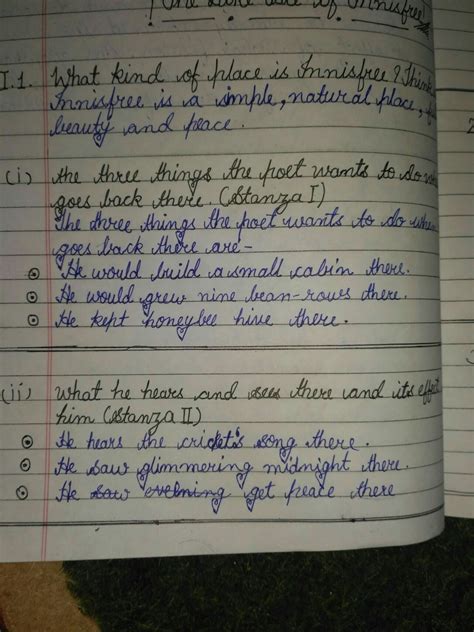 The Lake Isle of Innisfree
I.1. What kind of place is Innisfree? Think
Innisfree is a simple, natural place,
beauty and peace.
(i) the three things the poet wants to do
goes back there. (Stanza I)
The three things the poet wants to do when
goes back there are-
He would build a small cabin there.
He would grew nine bean-rows there.
He kept honeybee hive there.
(ii) what he hears and sees there and its effect
him (Stanza II)
He hears the cricket's song there.
He saw glimmering midnight there.
He saw evelning get peace there